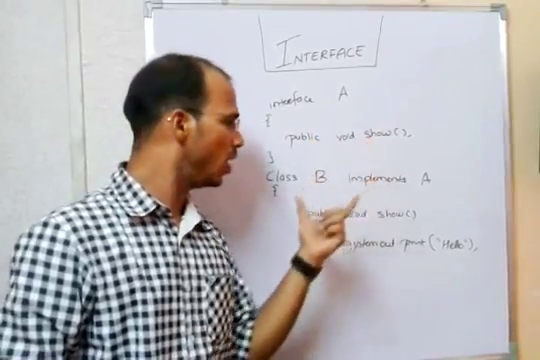 INTERFACE
interface A
{
public void show();
}
Class B implements A
{
public void show()
System.out.print("Hello");